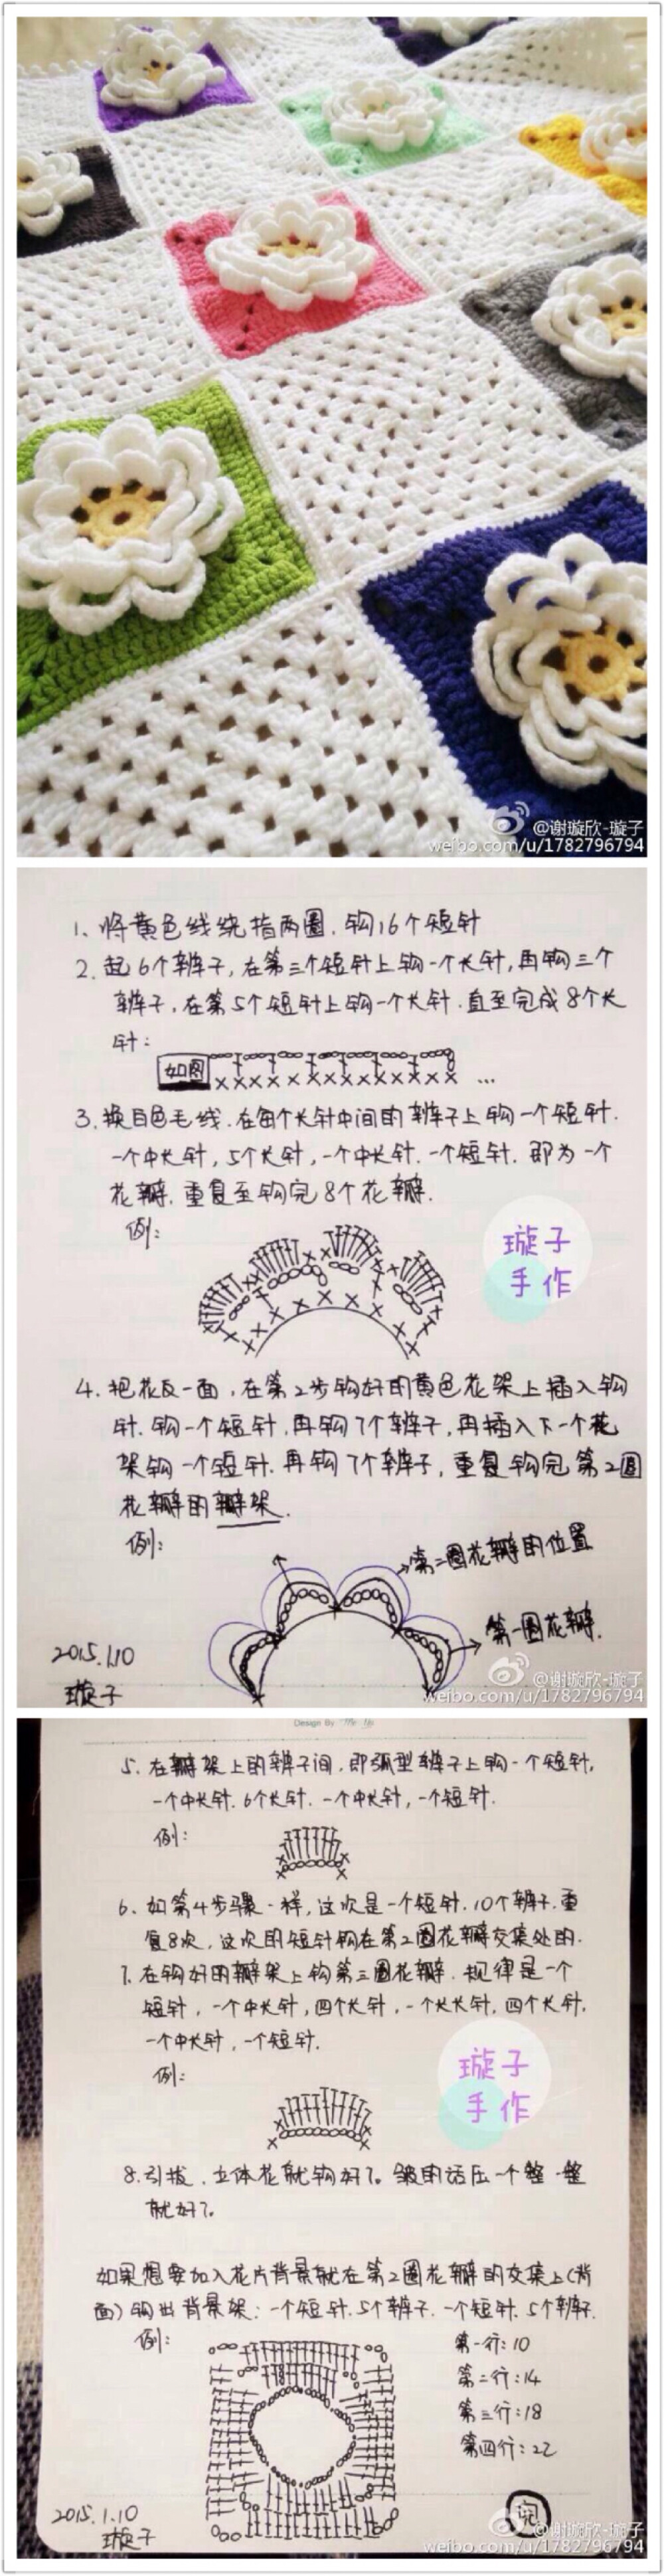 @谢璇欣-璇子
weibo.com/u/1782796794
1、将黄色线绕指两圈，钩16个短针
2、起6个辫子，在第三个短针上钩一个长针，再钩三个
辫子，在第5个短针上钩一个长针.直至完成8个长
针：
如图
...
3、换白色毛线.在每个长针中间的辫子上钩一个短针.
一个中长针，5个长针，一个中长针.一个短针.即为一个
花瓣.重复至钩完8个花瓣.
例：
璇子
手作
4、把花反一面，在第2步钩好的黄色花架上插入钩
针.钩一个短针，再钩7个辫子，再插入下一个花
架钩一个短针.再钩7个辫子，重复钩完第2圈
花瓣的瓣架.
例：
第二圈花瓣的位置
第一圈花瓣.
2015.1.10
璇子
@谢璇欣-璇子
weibo.com/u/1782796794
Design By
5、在瓣架上的辫子间，即弧型辫子上钩一个短针，
一个中长针.6个长针.一个中长针，一个短针.
例：
6、如第4步骤一样，这次是一个短针.10个辫子.重
复8次，这次的短针钩在第2圈花瓣交集处的.
7、在钩好的瓣架上钩第三圈花瓣.规律是一个
短针，一个中长针，四个长针，一个长长针，四个长针，
一个中长针，一个短针.
例：
璇子
手作
8、引拔.立体花就钩好了。皱的话压一个整一整
就好了。
如果想要加入花片背景就在第2圈花瓣的交集上(背
面)钩出背景架：一个短针.5个辫子.一个短针.5个辫子.
例：
第一行：10
第二行：14
第三行：18
第四行：22
2015.1.10
璇子
@谢璇欣-璇子
weibo.com/u/1782796794